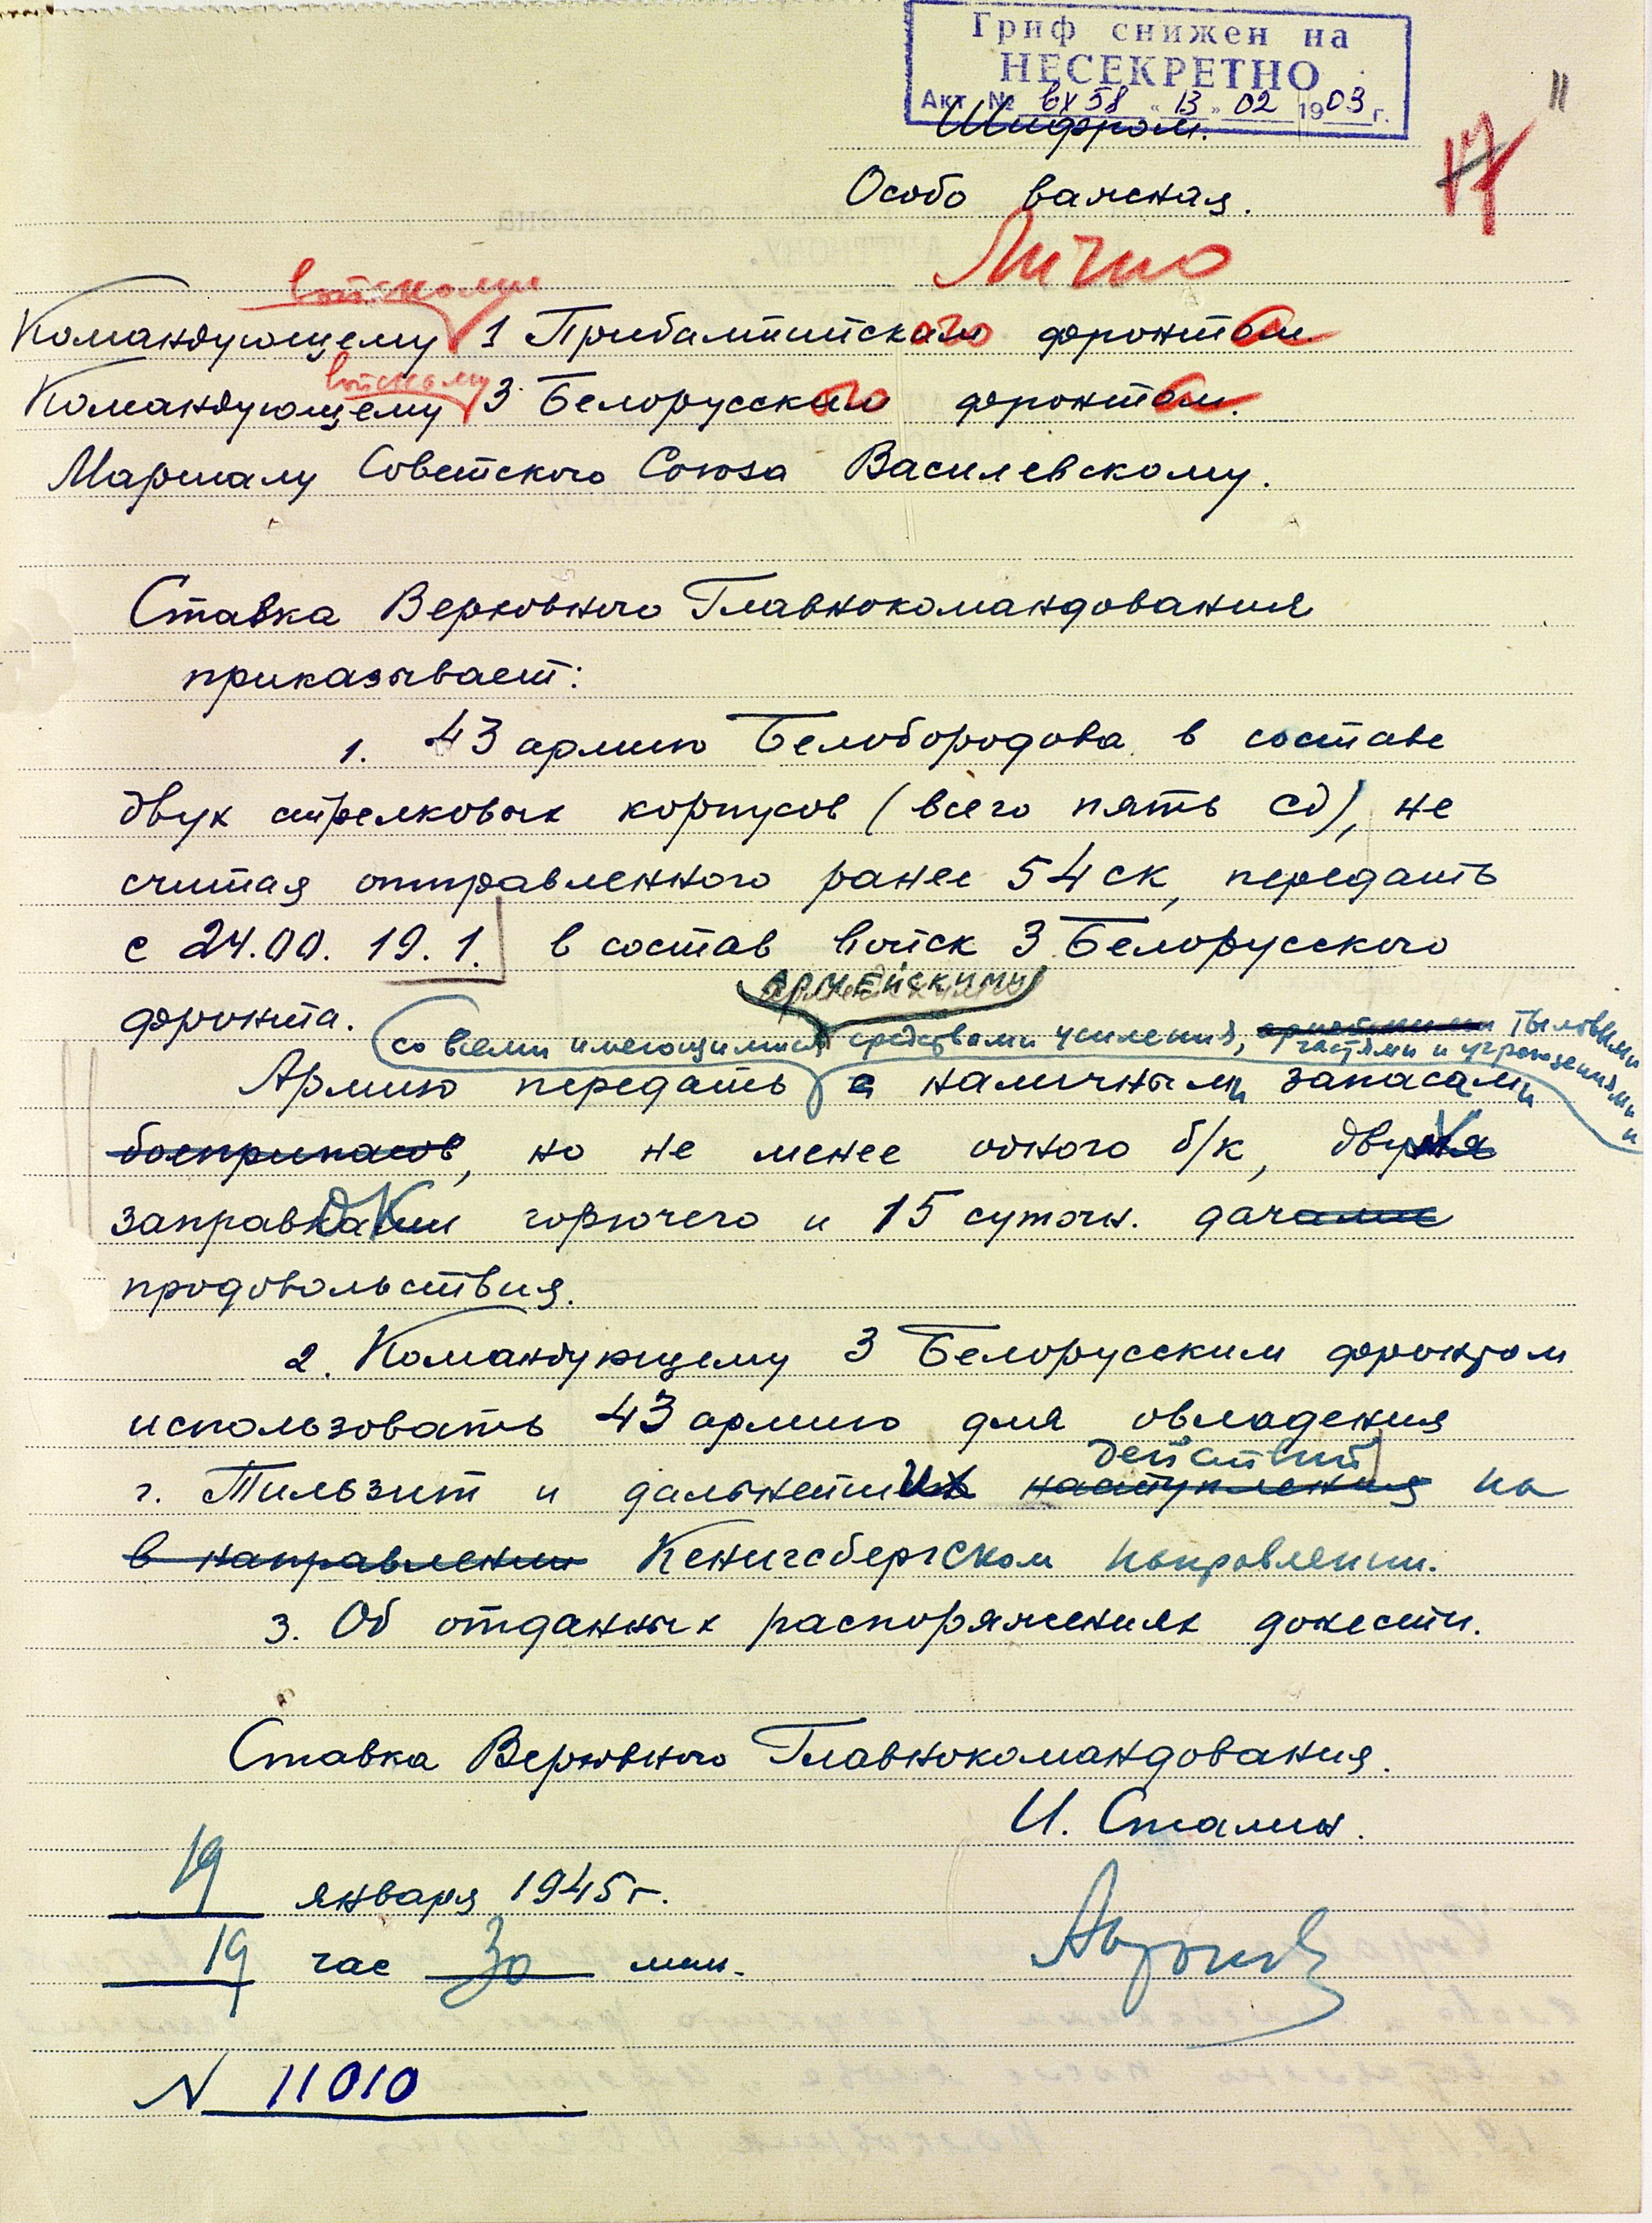 Гриф снижен на
НЕСЕКРЕТНО
Акт № вх 58 "13" 02 1903 г.
Шифром.
11
17
Особо важная.
Лично
войсками
Командующему 1 Прибалтийского фронта
войсками
Командующему 3 Белорусского фронта
Маршалу Советского Союза Василевскому.
Ставка Верховного Главнокомандования
приказывает:
1. 43 армию Белобородова в составе
двух стрелковых корпусов (всего пять сд), не
считая отправленного ранее 54 ск, передать
с 24.00. 19.1. в состав войск 3 Белорусского
фронта.
армейскими
со всеми имеющимися средствами усиления, тыловыми
частями и учреждениями и
Армию передать с наличными запасами
боеприпасов, но не менее одного б/к, двух
заправок горючего и 15 суточн. дач
продовольствия.
2. Командующему 3 Белорусским фронтом
использовать 43 армию для овладения
действий
г. Тильзит и дальнейших наступления на
в направлении Кенигсбергском направлении.
3. Об отданных распоряжениях донести.
Ставка Верховного Главнокомандования.
И. Сталин.
19 января 1945 г.
19 час 30 мин.
Антонов
N 11010